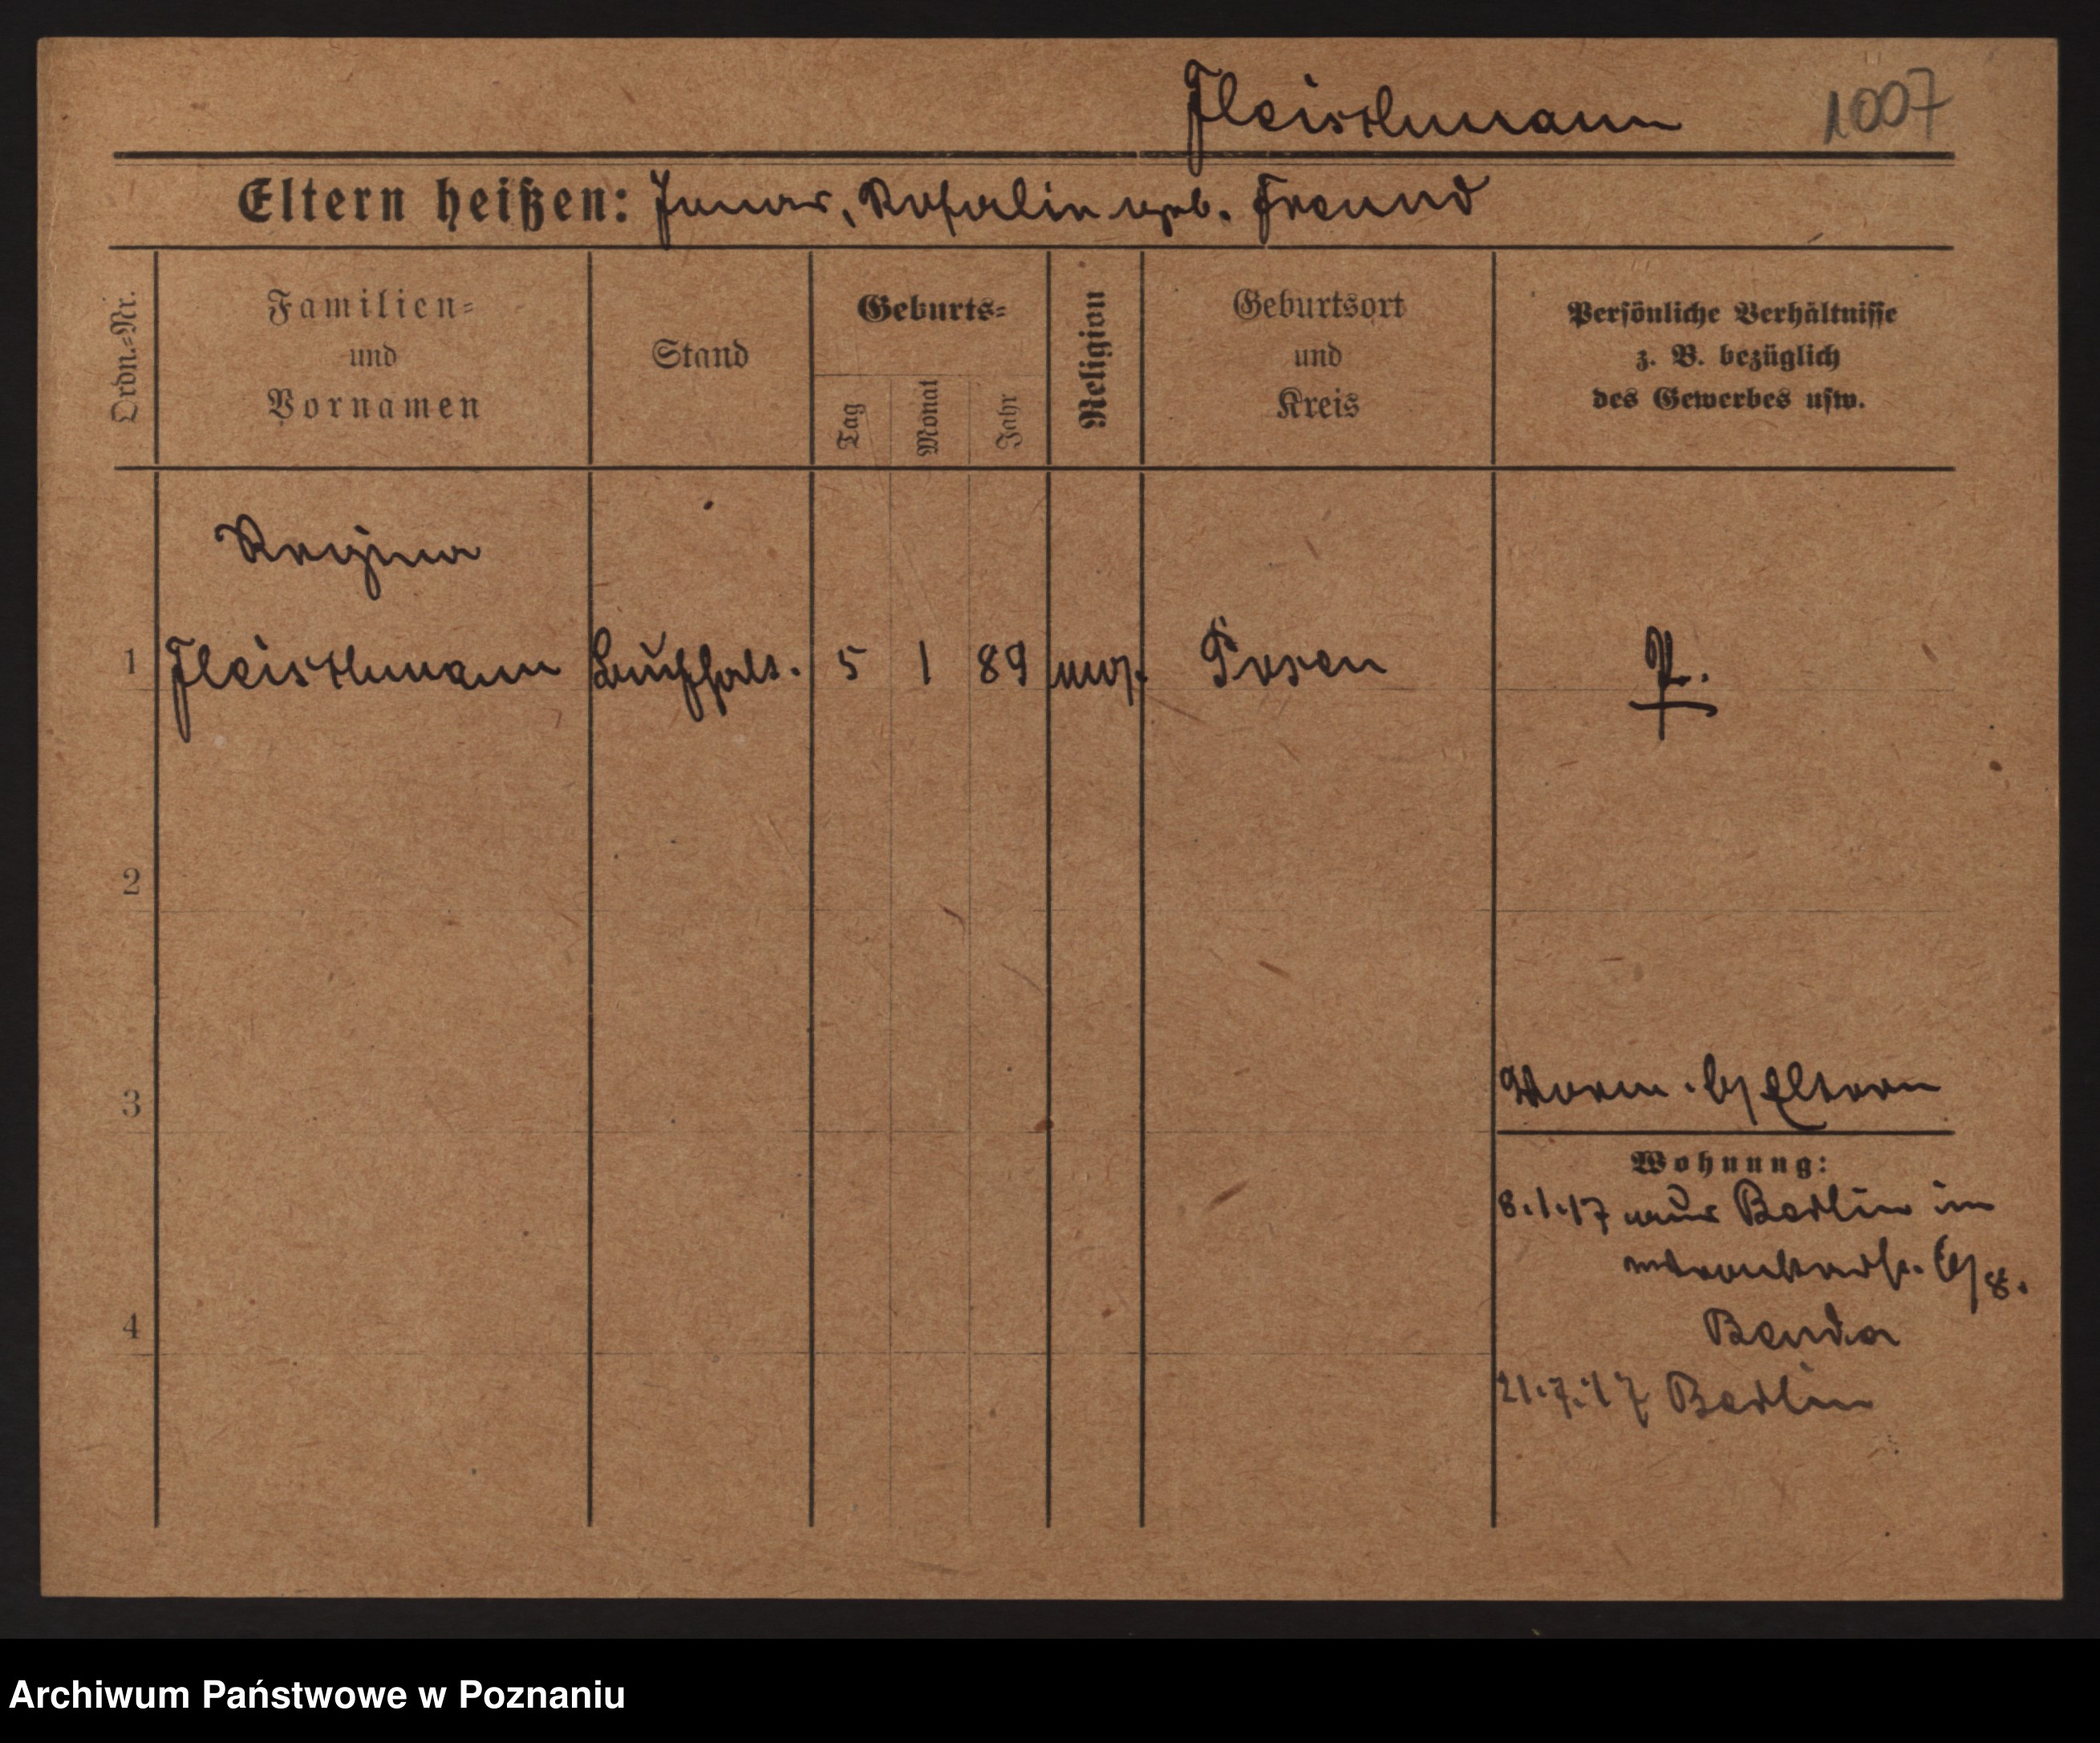 Fleischmann 1007
Eltern heißen: Isaac, Rosalie geb. Freund
Ordn.-Nr.
Familien-
und
Vornamen
Stand
Geburts-
Tag
Monat
Jahr
Religion
Geburtsort
und
Kreis
Persönliche Verhältnisse
z. B. bezüglich
des Gewerbes usw.
Regina
1 Fleischmann Buchhalt. 5 1 89 mos. Posen P.
2
3
b/ Eltern
Wohnung:
8.1.17 aus Berlin in
b/
Benda
4
21.7.17 Berlin
Archiwum Państwowe w Poznaniu